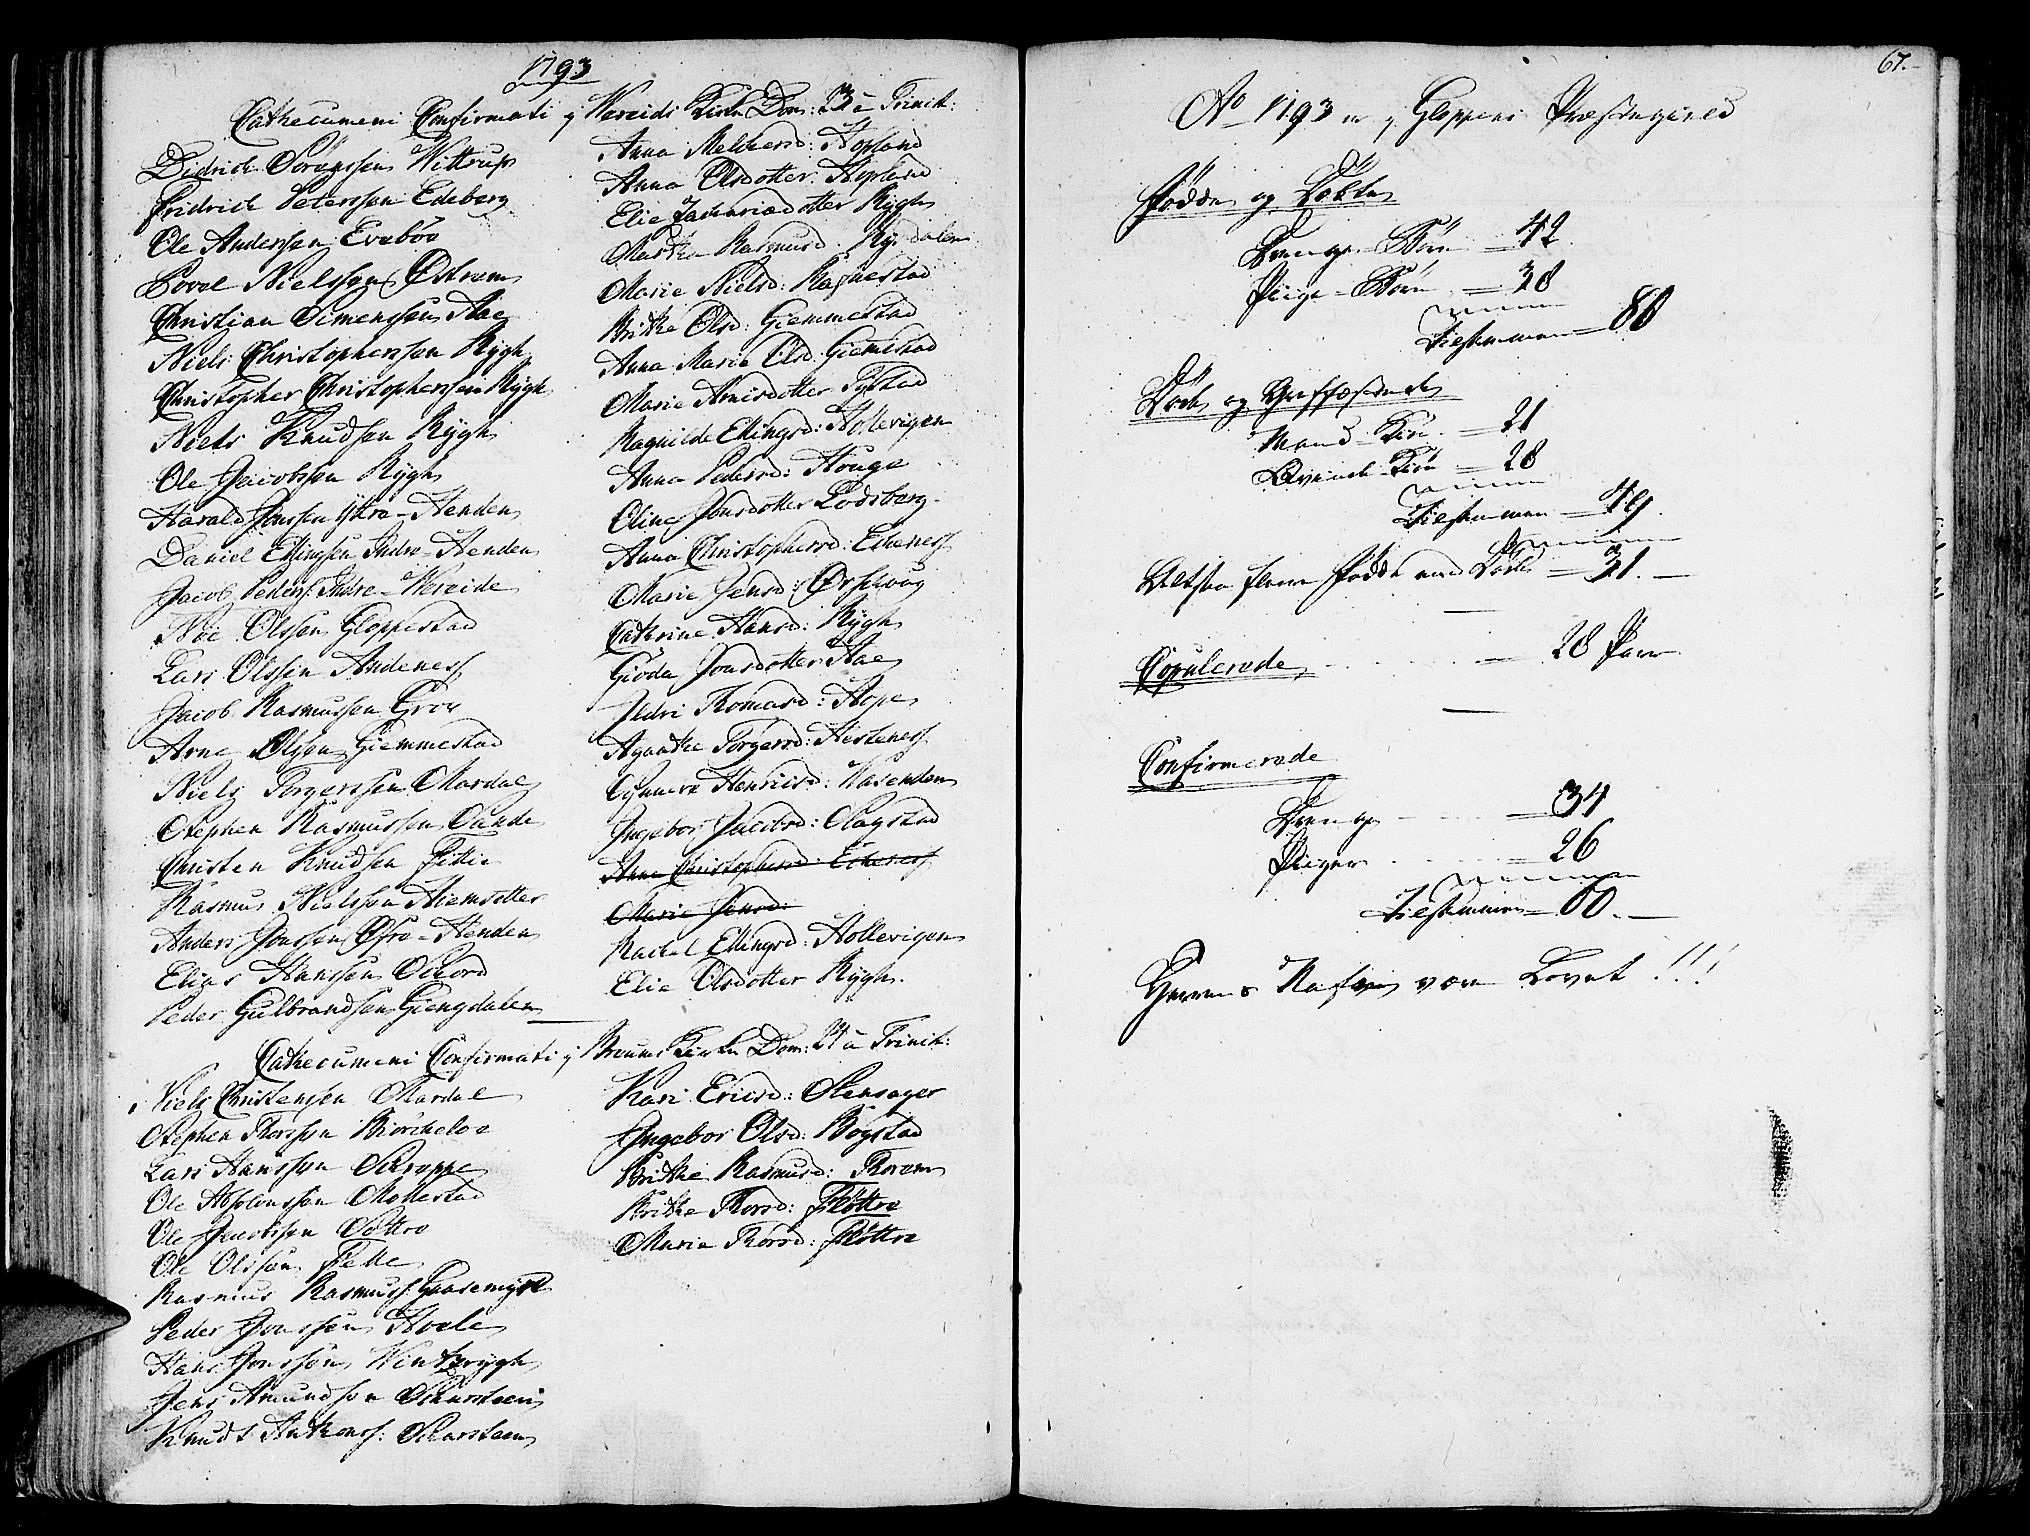 1793
Cathecumeni Confirmati i Wereids Kirke Dom: 23 à Trinit:
Didrich Sörenssen Wittrup
Fridrich Peterssen Edeberg
Ole Anderssen Eveböe
Povel Nielssøn Østrem
Christjan Simenssen Aae
Niels Christopherssen Rygh
Christopher Christopherssen Rygh
Niels Knudsen Rygh
Ole Jacobssen Rygh
Harald Jonssen Yttre-Henden
Daniel Ellingsen Indre-Henden
Jacob Peders: Indre-Wereide
Noe Olssen Gloppestad
Lars Olssen Andenes
Jacob Rasmussen Grov
Arne Olssen Giemmestad
Niels Torgerssen Mardal
Stephen Rasmussen Sande
Christen Knudsen Fitie
Rasmus Nielssen Hiemsetter
Anders Jonssen Øfre-Henden
Elias Hanssen Schord
Peder Gulbrandsen Giengdalen
Anna Melchersd: Hopland
Anna Olsdotter Hopland
Elie Zachariædotter Rygh
Martha Rasmusd: Rysdalen
Marie Nielsd: Raqnestad
Brithe Olsd: Giemmestad
Anna Marie Olsd: Giemestad
Marie Arnisdotter Tystad
Ragnilde Ellingsd: Hollevigen
Anna Pedersd: Houge
Eline Jonsdotter Lodsberg
Anna Christophersd: Echenes
Marie Jensd: Ørsevog
Cathrine Hansd: Rygh
Giöda Jonsdotter Aae
Ildri Thomasd: Hope
Agathe Torgersd: Hestenes
Gunnera Henricsd: Vasenden
Ingebor Jacobsd: Slagstad
Anna Christophersd: Echenes
Marie Jensd:
Rachel Ellingsd: Hollevigen
Elie Olsdotter Rygh.
Cathecumeni Confirmati i Breums Kirke Dom: 24 à Trinit:
Niels Christensen Mardal
Stephen Thorssen Biörcheloe
Lars Hanssen Schroppe
Ole Absolonssen Moldestad
Ole Jacobssen Sættre
Ole Olssen Felle
Rasmus Rasmuss: Gaasemyr
Peder Jonssen Hoele
Hans Jonssen Winterrygh
Jens Amundsen Scharsteen
Knudt Anthons: Scharsteen
Kari Ericsd: Stensager
Ingebor Olsd: Bogstad
Brithe Rasmusd: Florem
Brithe Thorsd: Flöttre
Marie Thorsd: Flöttre
67.
Ao 1793 er i Gloppens Præstegield
Födde og Döbte
Drenge-Börn = 42.
Piige-Börn = 38
Tilsammen = 80
Döde og Begravede
Mand-Kiön = 21
Qvinde-Kiön = 28
Tilsammen = 49.
Altsaa flere födde end Döde = 31.
Copulerede - - - 28 Par
Confirmerede
Drenge - - = 34
Piiger - - = 26
Tilsammen = 60.
Herrens Nafn være Lovet!!!